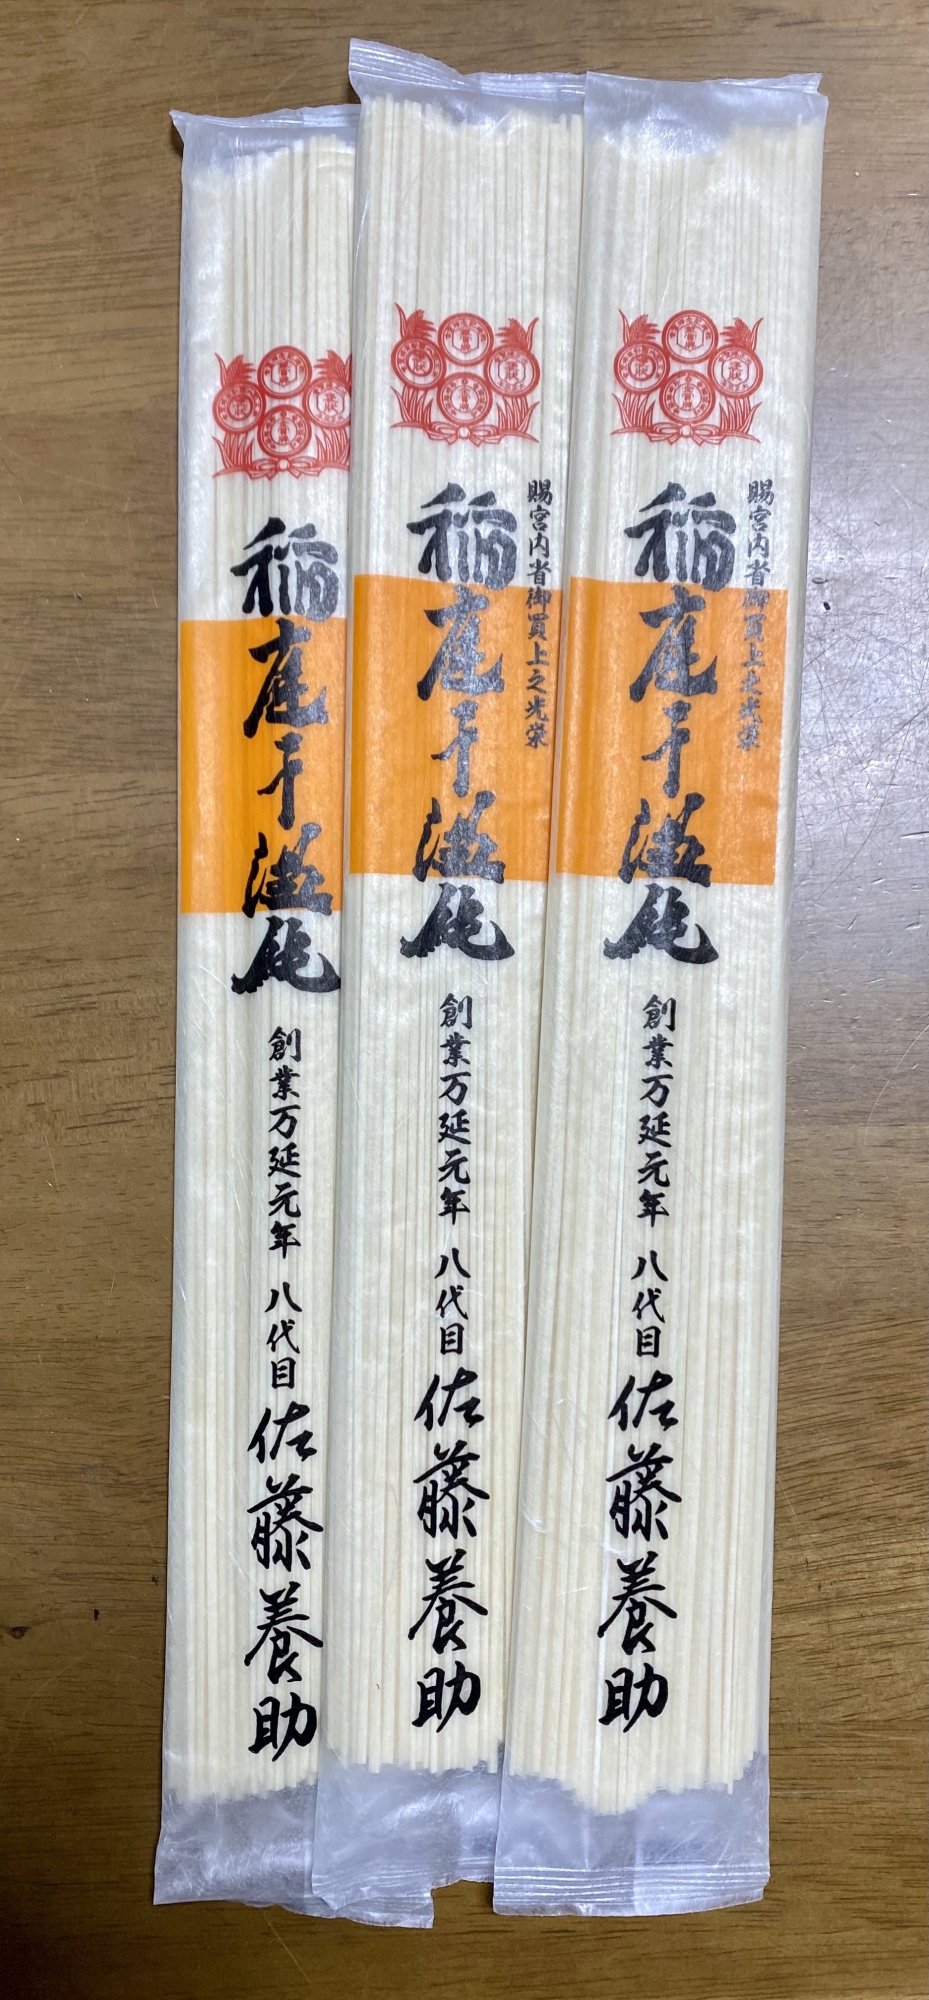 賜宮内省御買上之光栄
稲庭干温飩
創業万延元年 八代目 佐藤養助
賜宮内省御買上之光栄
稲庭干温飩
創業万延元年 八代目 佐藤養助
稲庭干温飩
創業万延元年 八代目 佐藤養助